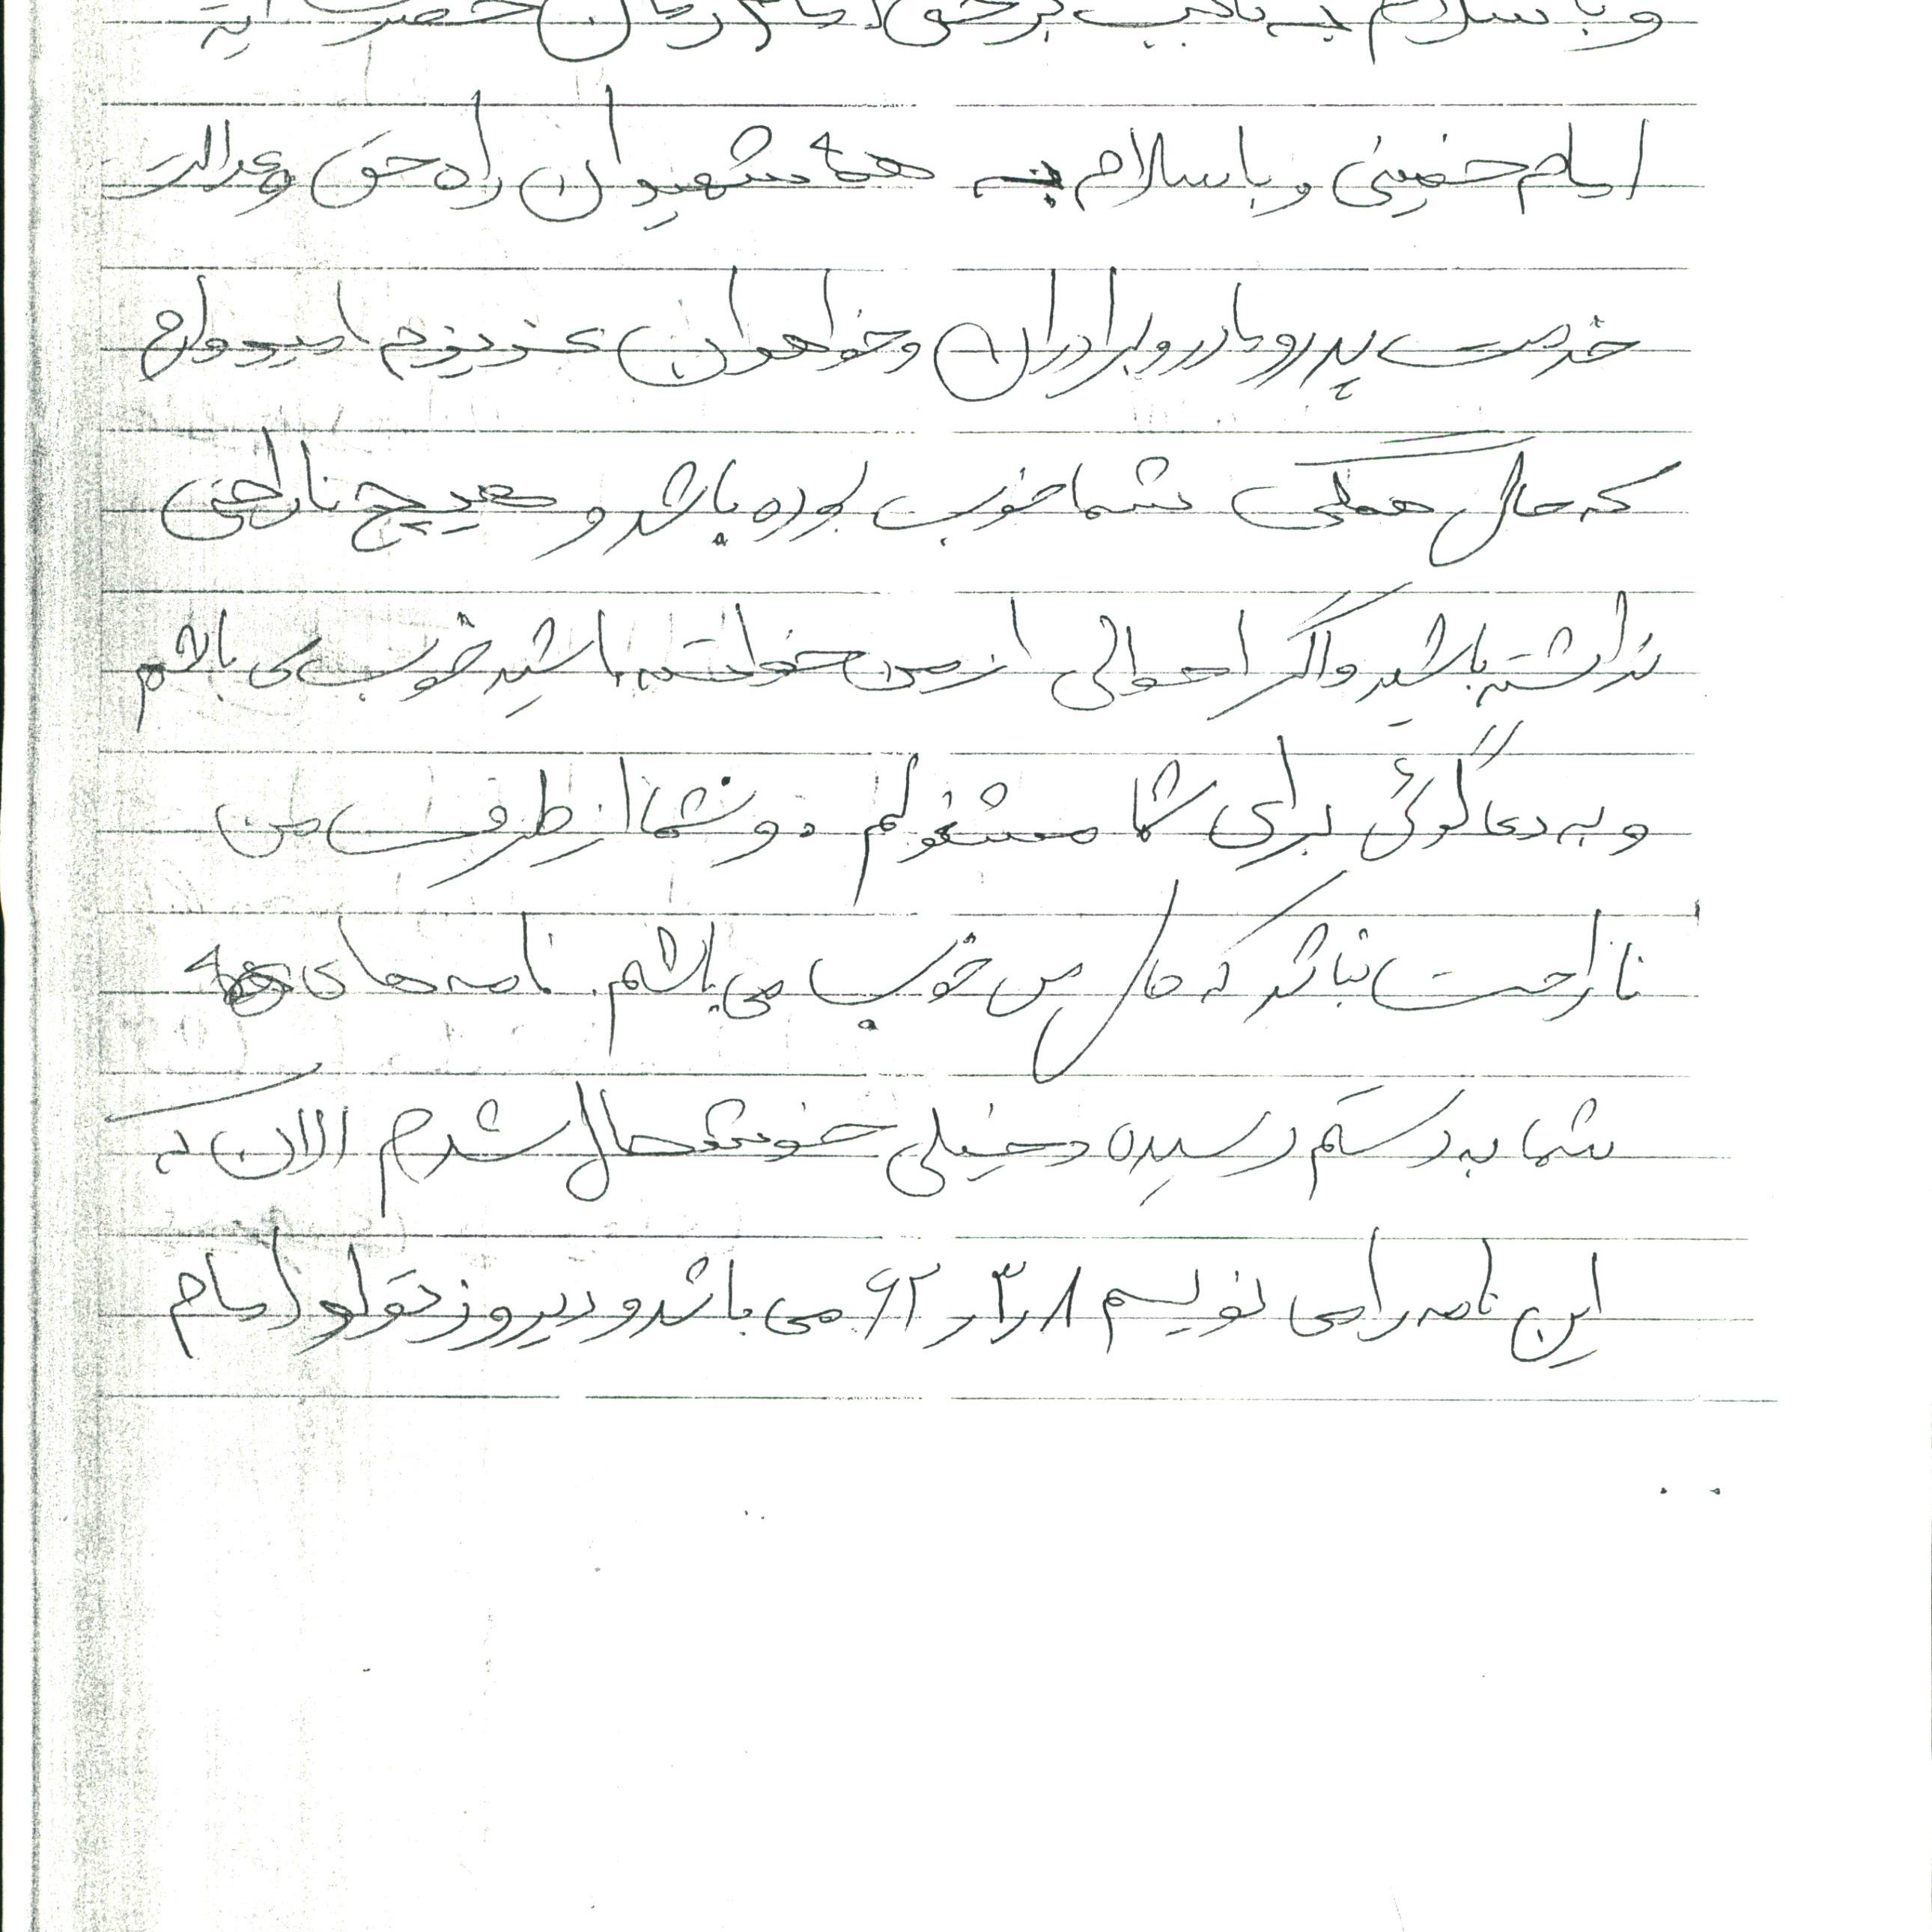 و با سلام به نائب برحق امام زمان حضرت آیه
امام خمینی و با سلام به همه شهیدان راه حق و عدالت
خدمت پدر و مادر و برادران و خواهران عزیزم امیدوارم
که حال همگی شما خوب بوده باشد و هیچ ناراحتی
نداشته باشید و اگر احوالی از من خواسته باشید خوب می باشم
و به دعا گوئی برای شما مشغولم . و شما از طرف من
ناراحت نباشد که حال من خوب می باشم . نامه های همه
شما به دستم رسیده و خیلی خوشحال شدم الان که
این نامه را می نویسم ۶۲/۳/۸ می باشد و دیروز تولد امام